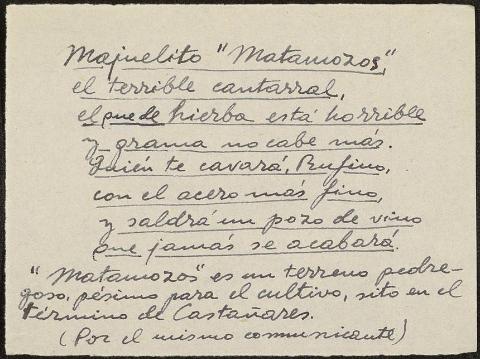 Majuelito "Matamozos,"
el terrible cantarral,
el que de hierba está horrible
y grama no cabe más.
Quién te cavará, Rufino,
con el acero más fino,
y saldrá un pozo de vino
que jamás se acabará.
"Matamozos" es un terreno pedre-
goso, pésimo para el cultivo, sito en el
término de Castañares.
(Por el mismo comunicante)